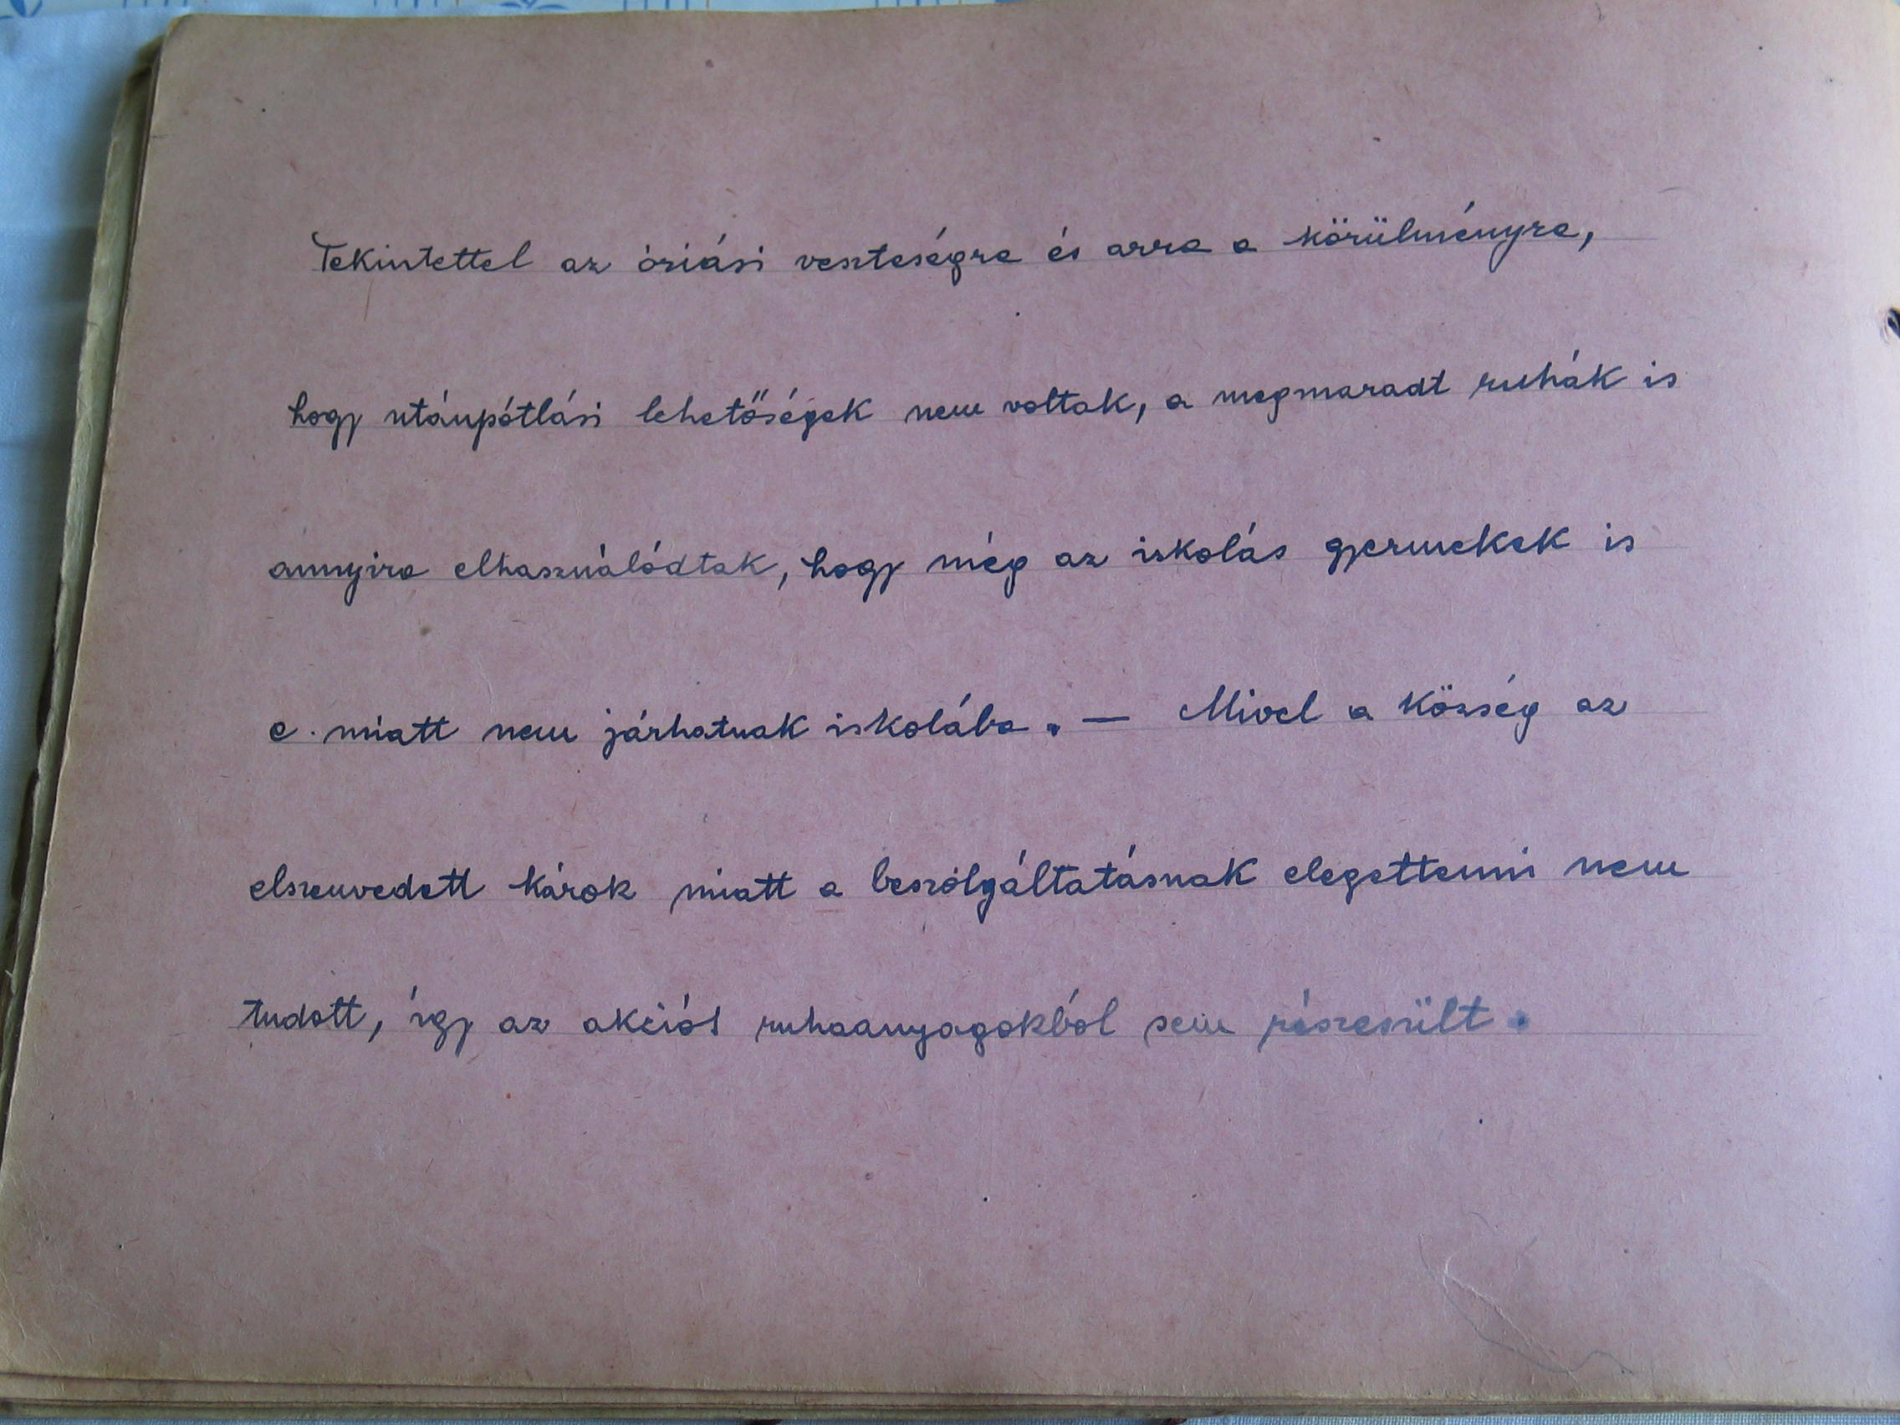 Tekintettel az óriási veszteségre és arra a körülményre,
hogy utánpótlási lehetőségek nem voltak, a megmaradt ruhák is
annyira elhasználódtak, hogy még az iskolás gyermekek is
e miatt nem járhatnak iskolába. — Mivel a község az
elszenvedett károk miatt a beszólgáltatásnak elegettenni nem
tudott, így az akciós ruhaanyagokból sem részesült.